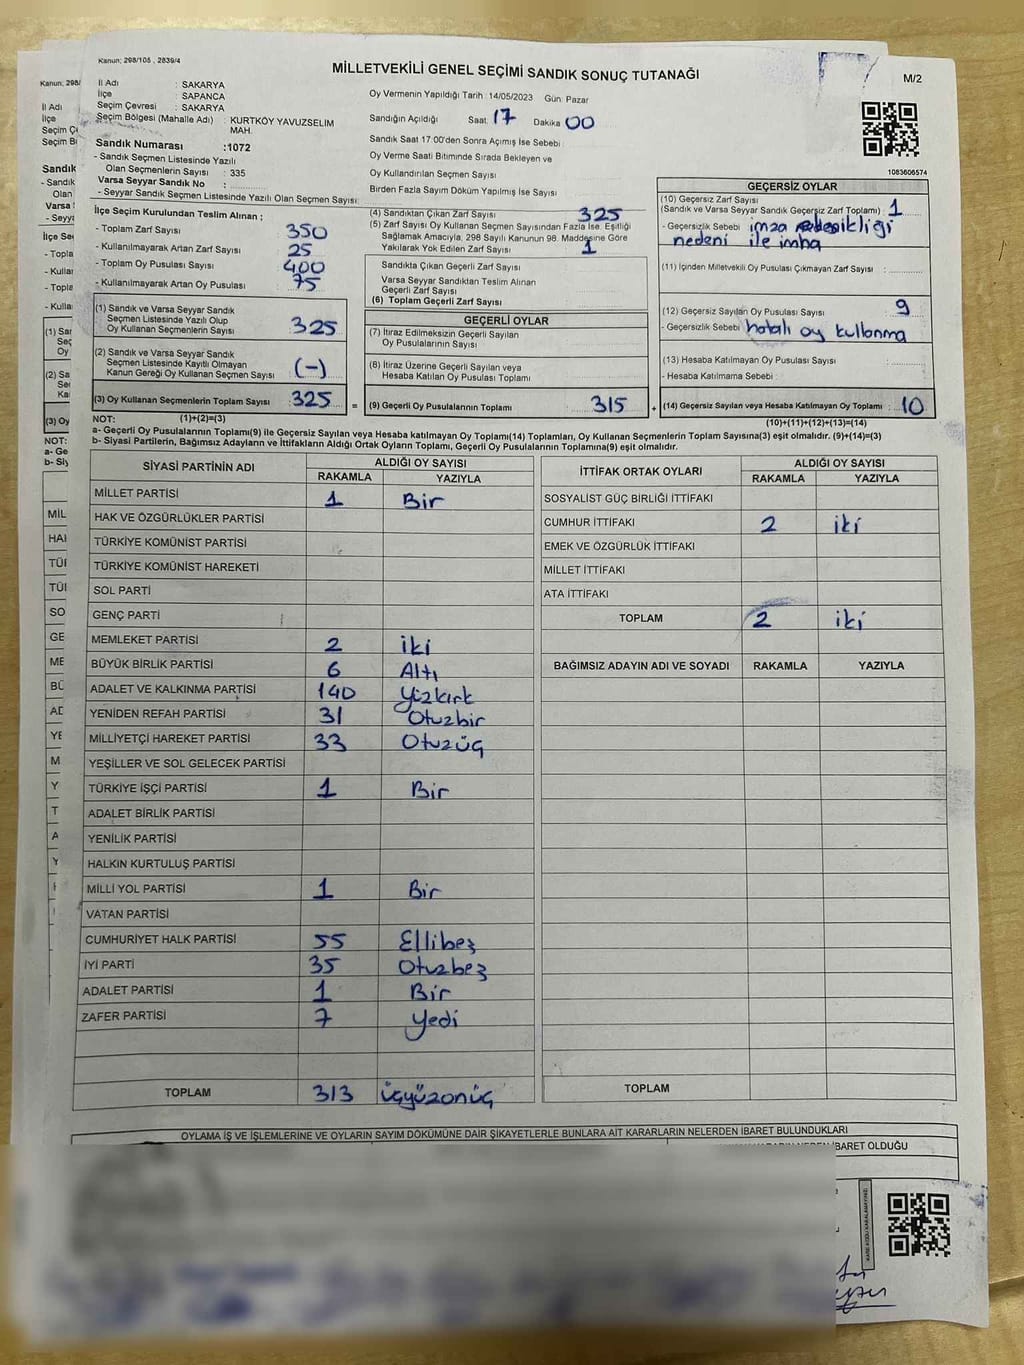 Kanun; 298/105 , 2839/4
MİLLETVEKİLİ GENEL SEÇİMİ SANDIK SONUÇ TUTANAĞI
M/2
İl Adı : SAKARYA
İlçe : SAPANCA
Seçim Çevresi : SAKARYA
Seçim Bölgesi (Mahalle Adı) : KURTKÖY YAVUZSELİM
MAH.
Sandık Numarası :1072
- Sandık Seçmen Listesinde Yazılı
Olan Seçmenlerin Sayısı : 335
Varsa Seyyar Sandık No :
- Seyyar Sandık Seçmen Listesinde Yazılı Olan Seçmen Sayısı:
Oy Vermenin Yapıldığı Tarih :14/05/2023 Gün: Pazar
Sandığın Açıldığı Saat: 17 Dakika 00
Sandık Saat 17:00'den Sonra Açımış İse Sebebi :
Oy Verme Saati Bitiminde Sırada Bekleyen ve
Oy Kullandırılan Seçmen Sayısı
Birden Fazla Sayım Döküm Yapılmış İse Sayısı :
1083606574
İlçe Seçim Kurulundan Teslim Alınan ;
- Toplam Zarf Sayısı : 350
- Kullanılmayarak Artan Zarf Sayısı : 25
- Toplam Oy Pusulası Sayısı : 400
- Kullanılmayarak Artan Oy Pusulası : 75
(1) Sandık ve Varsa Seyyar Sandık
Seçmen Listesinde Yazılı Olup
Oy Kullanan Seçmenlerin Sayısı : 325
(2) Sandık ve Varsa Seyyar Sandık
Seçmen Listesinde Kayıtlı Olmayan
Kanun Gereği Oy Kullanan Seçmen Sayısı : (-)
(3) Oy Kullanan Seçmenlerin Toplam Sayısı : 325
(4) Sandıktan Çıkan Zarf Sayısı : 325
(5) Zarf Sayısı Oy Kullanan Seçmen Sayısından Fazla İse, Eşitliği
Sağlamak Amacıyla, 298 Sayılı Kanunun 98. Maddesine Göre
Yakılarak Yok Edilen Zarf Sayısı : 1
Sandıkta Çıkan Geçerli Zarf Sayısı
Varsa Seyyar Sandıktan Teslim Alınan
Geçerli Zarf Sayısı
(6) Toplam Geçerli Zarf Sayısı
GEÇERLİ OYLAR
(7) İtiraz Edilmeksizin Geçerli Sayılan
Oy Pusulalarının Sayısı
(8) İtiraz Üzerine Geçerli Sayılan veya
Hesaba Katılan Oy Pusulası Toplamı
= (9) Geçerli Oy Pusulalarının Toplamı : 315
GEÇERSİZ OYLAR
(10) Geçersiz Zarf Sayısı
(Sandık ve Varsa Seyyar Sandık Geçersiz Zarf Toplamı) : 1
- Geçersizlik Sebebi : imza eksikliği
nedeni ile imha
(11) İçinden Milletvekili Oy Pusulası Çıkmayan Zarf Sayısı :
(12) Geçersiz Sayılan Oy Pusulası Sayısı : 9
- Geçersizlik Sebebi hatalı oy kullanma
(13) Hesaba Katılmayan Oy Pusulası Sayısı :
- Hesaba Katılmama Sebebi :
+ (14) Geçersiz Sayılan veya Hesaba Katılmayan Oy Toplamı : 10
NOT: (1)+(2)=(3) (10)+(11)+(12)+(13)=(14)
a- Geçerli Oy Pusulalarının Toplamı(9) ile Geçersiz Sayılan veya Hesaba katılmayan Oy Toplamı(14) Toplamları, Oy Kullanan Seçmenlerin Toplam Sayısına(3) eşit olmalıdır. (9)+(14)=(3)
b- Siyasi Partilerin, Bağımsız Adayların ve İttifakların Aldığı Ortak Oyların Toplamı, Geçerli Oy Pusulalarının Toplamına(9) eşit olmalıdır.
SİYASİ PARTİNİN ADI ALDIĞI OY SAYISI
RAKAMLA YAZIYLA
MİLLET PARTİSİ 1 Bir
HAK VE ÖZGÜRLÜKLER PARTİSİ
TÜRKİYE KOMÜNİST PARTİSİ
TÜRKİYE KOMÜNİST HAREKETİ
SOL PARTİ
GENÇ PARTİ
MEMLEKET PARTİSİ 2 iki
BÜYÜK BİRLİK PARTİSİ 6 Altı
ADALET VE KALKINMA PARTİSİ 140 Yüzkırk
YENİDEN REFAH PARTİSİ 31 Otuzbir
MİLLİYETÇİ HAREKET PARTİSİ 33 Otuzüç
YEŞİLLER VE SOL GELECEK PARTİSİ
TÜRKİYE İŞÇİ PARTİSİ 1 Bir
ADALET BİRLİK PARTİSİ
YENİLİK PARTİSİ
HALKIN KURTULUŞ PARTİSİ
MİLLİ YOL PARTİSİ 1 Bir
VATAN PARTİSİ
CUMHURİYET HALK PARTİSİ 55 Ellibeş
İYİ PARTİ 35 Otuzbeş
ADALET PARTİSİ 1 Bir
ZAFER PARTİSİ 7 Yedi
TOPLAM 313 üçyüzonüç
İTTİFAK ORTAK OYLARI ALDIĞI OY SAYISI
RAKAMLA YAZIYLA
SOSYALİST GÜÇ BİRLİĞİ İTTİFAKI
CUMHUR İTTİFAKI 2 iki
EMEK VE ÖZGÜRLÜK İTTİFAKI
MİLLET İTTİFAKI
ATA İTTİFAKI
TOPLAM 2 iki
BAĞIMSIZ ADAYIN ADI VE SOYADI RAKAMLA YAZIYLA
TOPLAM
OYLAMA İŞ VE İŞLEMLERİNE VE OYLARIN SAYIM DÖKÜMÜNE DAİR ŞİKAYETLERLE BUNLARA AİT KARARLARIN NELERDEN İBARET BULUNDUKLARI
İBARET OLDUĞU